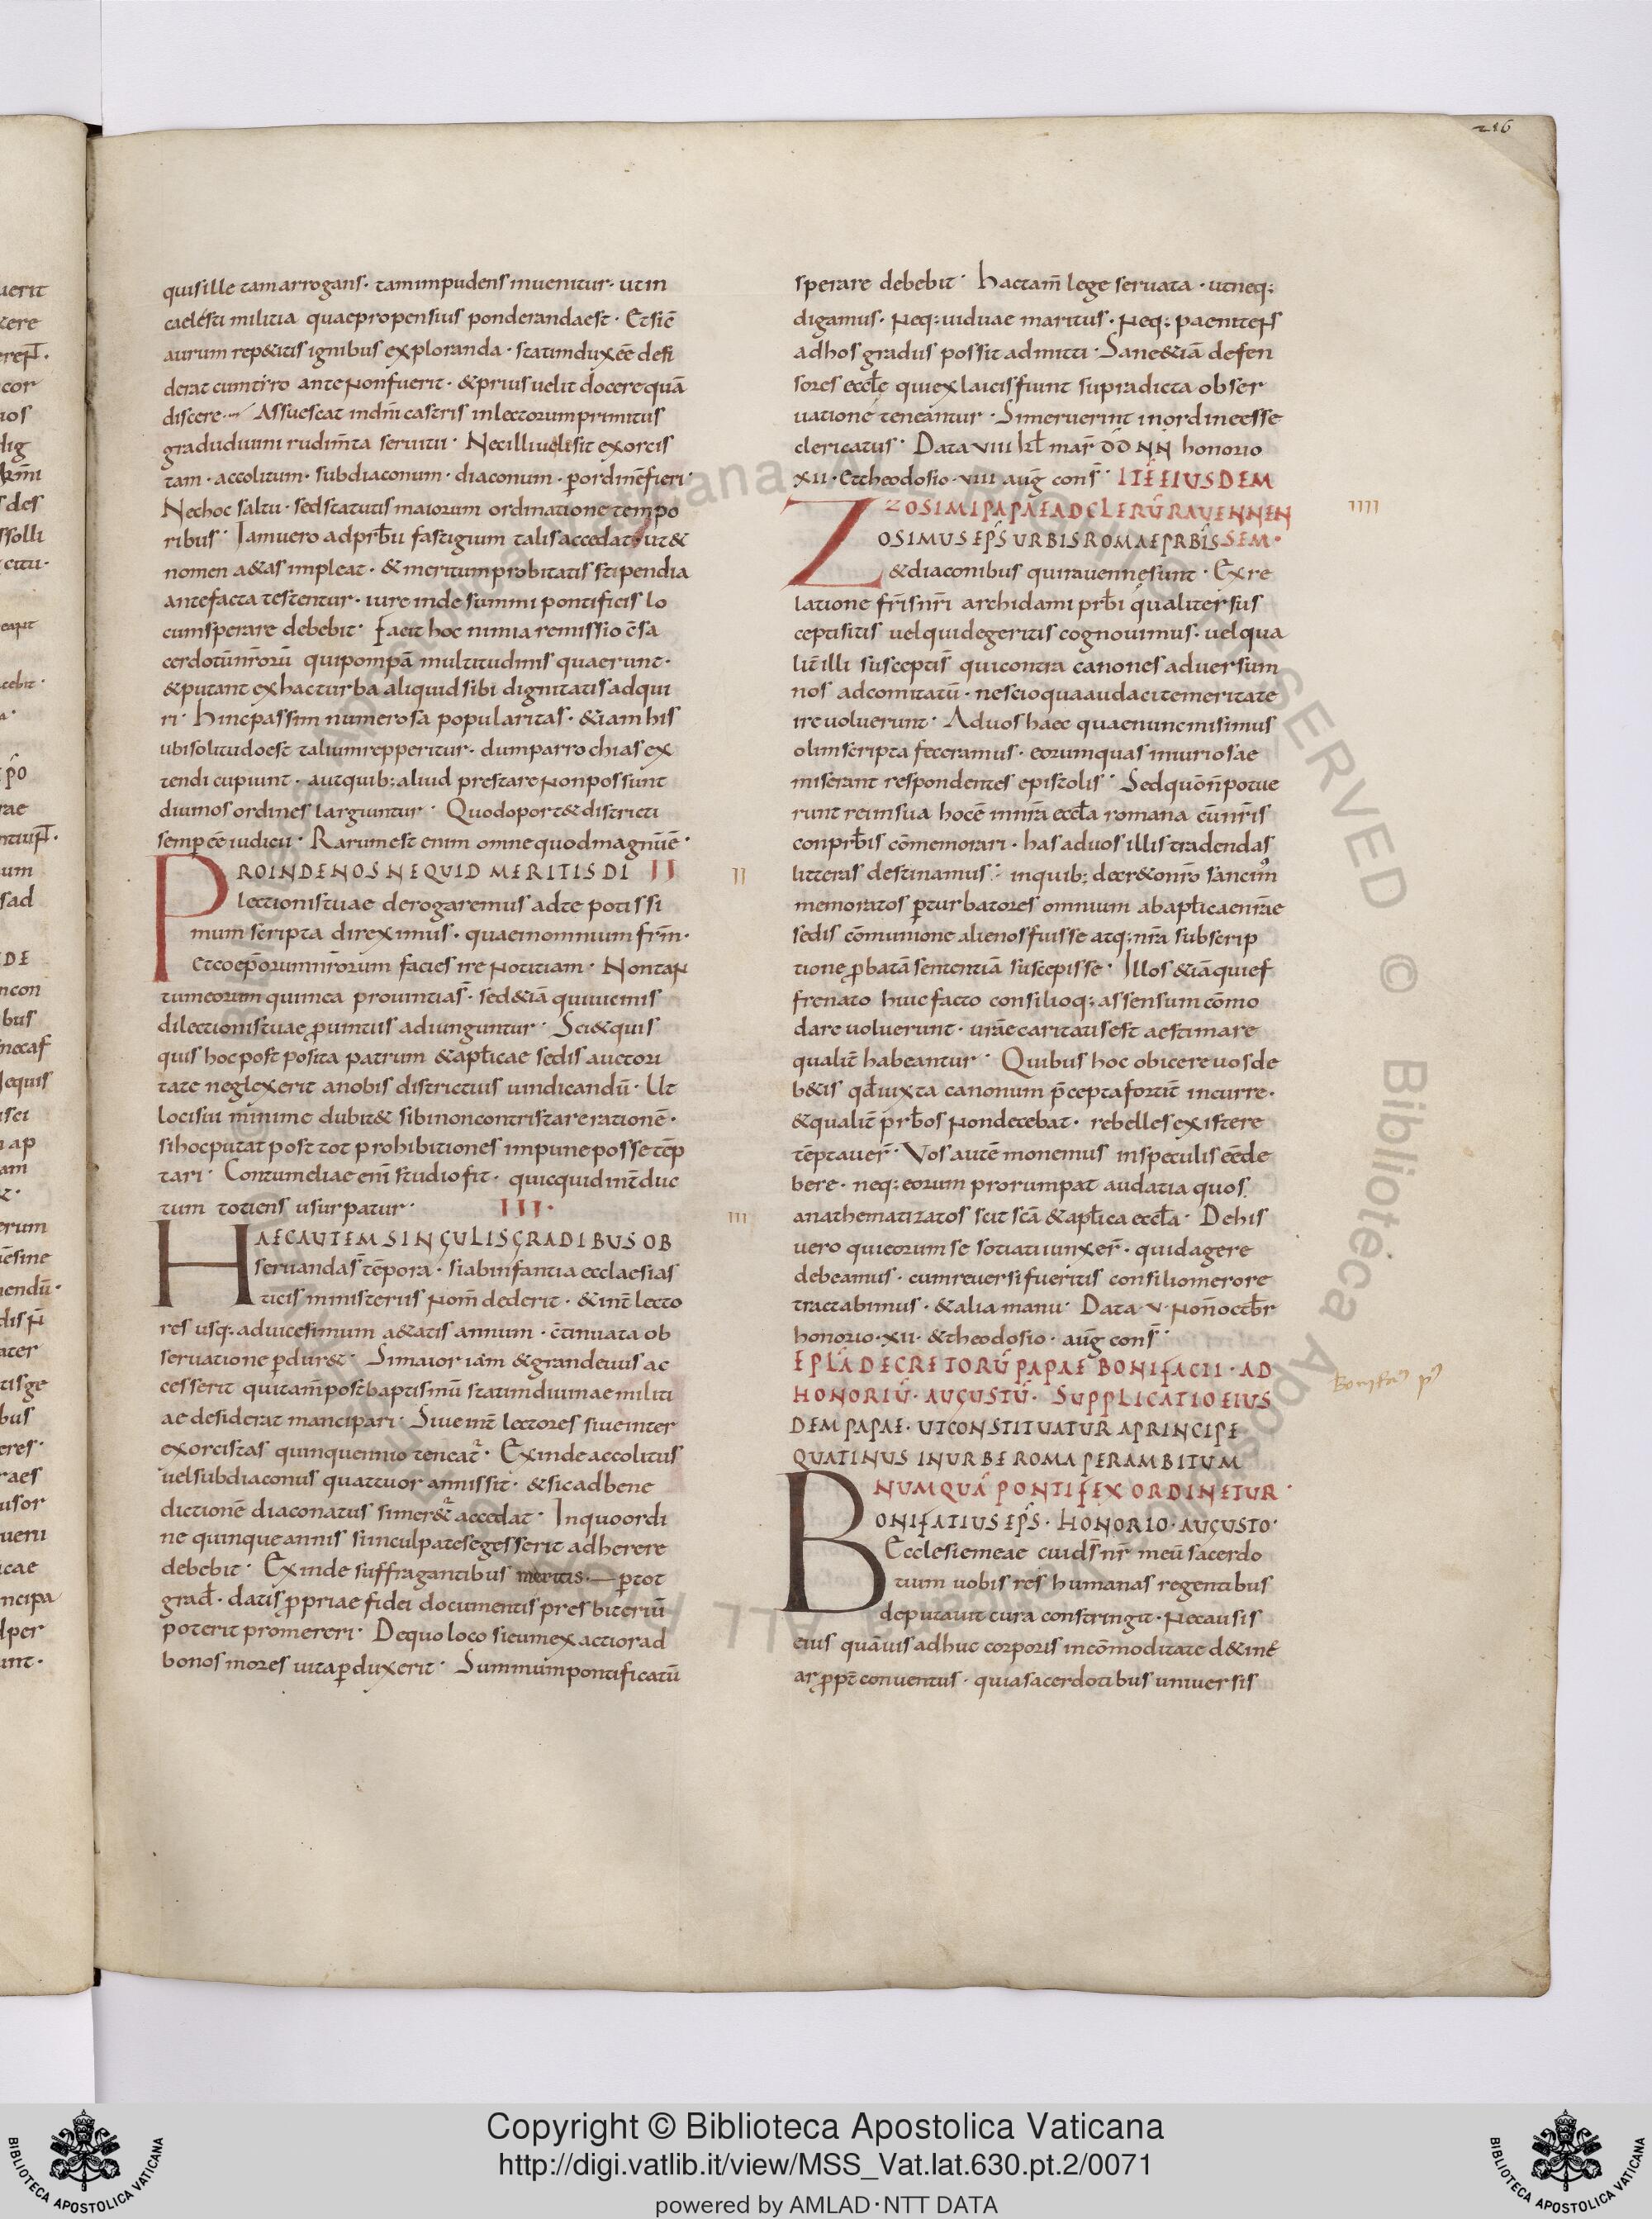 216
quis ille tam arrogans · tam impudens invenitur · ut in
caelesti militia quae propensius ponderanda est · Et sic̄
aurum rep&itis ignibus exploranda · statim dux eē desi
derat cum tiro ante non fuerit · & prius velit docere quā
discere · Assuescat in dn̄i castris in lectorum primitus
gradu divini rudim̄ta servitii · Nec illi vel sit exorcis
tam · accolitum · subdiaconum · diaconum · p ordinē fieri ·
Nec hoc saltu · sed statutis maiorum ordinatione tempo
ribus · Iam vero ad prb̄ii fastigium talis accedat · ut &
nomen a&as impleat · & meritum probitatis stipendia
antefacta testentur · iure inde summi pontificis lo
cum sperare debebit · Facit hoc nimia remissio c̄sa
cerdotū nr̄orū qui pompā multitudinis quaerunt ·
& putant ex hac turba aliquid sibi dignitatis adqui
ri · Hinc passim numerosa popularitas · & iam his
ubi solitudo est talium repperitur · dum parrochias ex
tendi cupiunt · aut quib; aliud prestare non possunt
divinos ordines largiuntur · Quod oport& districti
semp eē iudicii · Rarum est enim omne quod magnū ē ·
PROINDE NOS NEQUID MERITIS DI II
lectionis tuae derogaremus ad te potissi
mum scripta direximus · quae in omnium fr̄m ·
Et coep̄orum nr̄orum facies ire notitiam · Non tan
tum eorum qui in ea provintia s̄ · sed &iā qui vicinis
dilectionis tuae p vintiis adiunguntur · Sci& quis
quis hoc post posita patrum & apl̄icae sedis auctori
tate neglexerit a nobis districtius vindicandū · Ut
loci sui minime dubit& sibi non contristare rationē ·
si hoc putat post tot prohibitiones impune posse tēp
tari · Contumeliae eni studio fit · quicquid int̄duc
tum totiens usurpatur · III ·
HAEC AUTEM SINGULIS GRADIBUS OB
servanda s̄ tēpora · si ab infantia ecclaesias
ticis ministeriis nom̄ dederit · & int̄ lecto
res usq; ad vicesimum a&atis annum · c̄tinuata ob
servatione p dur& · Si maior iam & grandevius ac
cesserit qui tam̄ post baptismū statim divinae militi
ae desiderat mancipari · Sive int̄ lectores sive inter
exorcistas quinquennio teneat · Exinde accolitus
vel subdiaconus quattuor annis sit · & sic ad bene
dictionē diaconatus si mer& accedat · In quo ordi
ne quinque annis si inculpate se gesserit adherere
debebit · Exinde suffragantibus meritis · p tot
grad̄ · datis p priae fidei documentis presbiteriū
poterit promereri · De quo loco si eum exactior ad
bonos mores vita p duxerit · Summum pontificatū
II
III
sperare debebit · Hac tam̄ lege servata · ut neq;
digamus · neq; viduae maritus · neq; paenitens
ad hos gradus possit admitti · Sane &iā defen
sores eccl̄e qui ex laicis fiunt supradicta obser
vatione teneantur · Si meruerint in ordine esse
clericatus · Data VIII kl̄ mar̄ DD NN honorio
XII · Et theodosio · VIII aug̅ cons̄ · ITĒ EIUSDEM
ZOSIMI PAPAE AD CLERŪ RAVENNEN
ZOSIMUS EPS URBIS ROMAE PRBIS SEM ·
& diaconibus qui ravenne sunt · Ex re
latione fr̄is nr̄i archidami prb̄i qualiter sus
cepti sitis vel quid egeritis cognovimus · vel qua
lit̄ illi suscepti s̄ qui contra canones adversum
nos ad comitatū · nescio qua audaci temeritate
ire voluerunt · Ad vos haec quae nunc misimus
olim scripta feceramus · eorumquas iniuriosae
miserant respondentes epistolis · Sed quōn̄ potue
runt rei in sua hoc ē in nr̄a eccl̄a romana cū nr̄is
conprb̄is cōmemorari · has ad vos illis tradendas
litteras destinamus · in quib; decr&o nr̄o sancim
memoratos p turbatores omnium ab apl̄icae nr̄ae
sedis cōmunione alienos fuisse atq; nr̄a subscrip
tione p batā sententiā suscepisse · Illos &iā qui ef
frenato huic facto consilioq; assensum cōmo
dare voluerunt · vr̄ae caritatis est aestimare
qualit̄ habeantur · Quibus hoc obicere vos de
b&is qđ iuxta canonum p̄cepta fortit̄ incurre ·
& qualit̄ prb̄os non decebat · rebelles existere
tēptaver̄ · Vos autē monemus in speculis eē de
bere · neq; eorum prorumpat audatia quos
anathematizatos scit sc̄a & apl̄ica eccl̄a · De his
vero qui eorum se sotiati iunxer̄ · quid agere
debeamus · cum reversi fueritis consilio merore
tractabimus · & alia manu · Data · V · non̄ octb̄r
honorio · XII · & theodosio · aug̅ cons̄ ·
EPLA DECRETORŪ PAPAE BONIFACII · AD
HONORIŪ · AUGUSTŪ · SUPPLICATIO EIUS
DEM PAPAE · UT CONSTITUATUR A PRINCIPE
QUATINUS IN URBE ROMA PER AMBITUM
NUMQUĀ PONTIFEX ORDINETUR ·
BONIFATIUS EPS · HONORIO · AUGUSTO ·
Ecclesie meae cui ds̄ nr̄ meū sacerdo
tium vobis res humanas regentibus
deputavit cura constringit · Ne causis
eius quāvis adhuc corporis incōmoditate d&ine
ar p pt̄ conventus · qui a sacerdotibus universis
IIII
Bonifa p
Copyright © Biblioteca Apostolica Vaticana
http://digi.vatlib.it/view/MSS_Vat.lat.630.pt.2/0071
powered by AMLAD·NTT DATA
BIBLIOTECA APOSTOLICA VATICANA
BIBLIOTECA APOSTOLICA VATICANA